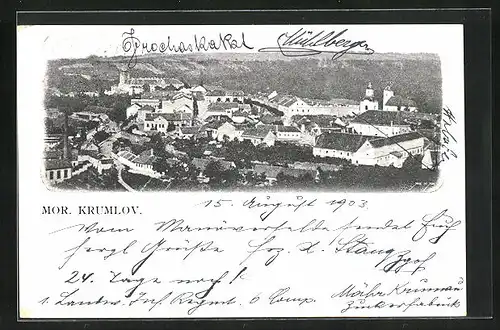 Prochaskakal Mühlberger
MOR. KRUMLOV.
15. August 1903.
Vom Manöverfelde sendet Euch
herzl Grüße Frz. X. Stang
Zgsf
24. Tage noch!
1. Landw. Inf Regmt 6 Comp.
Mähr Krumau
Zuckerfabrick